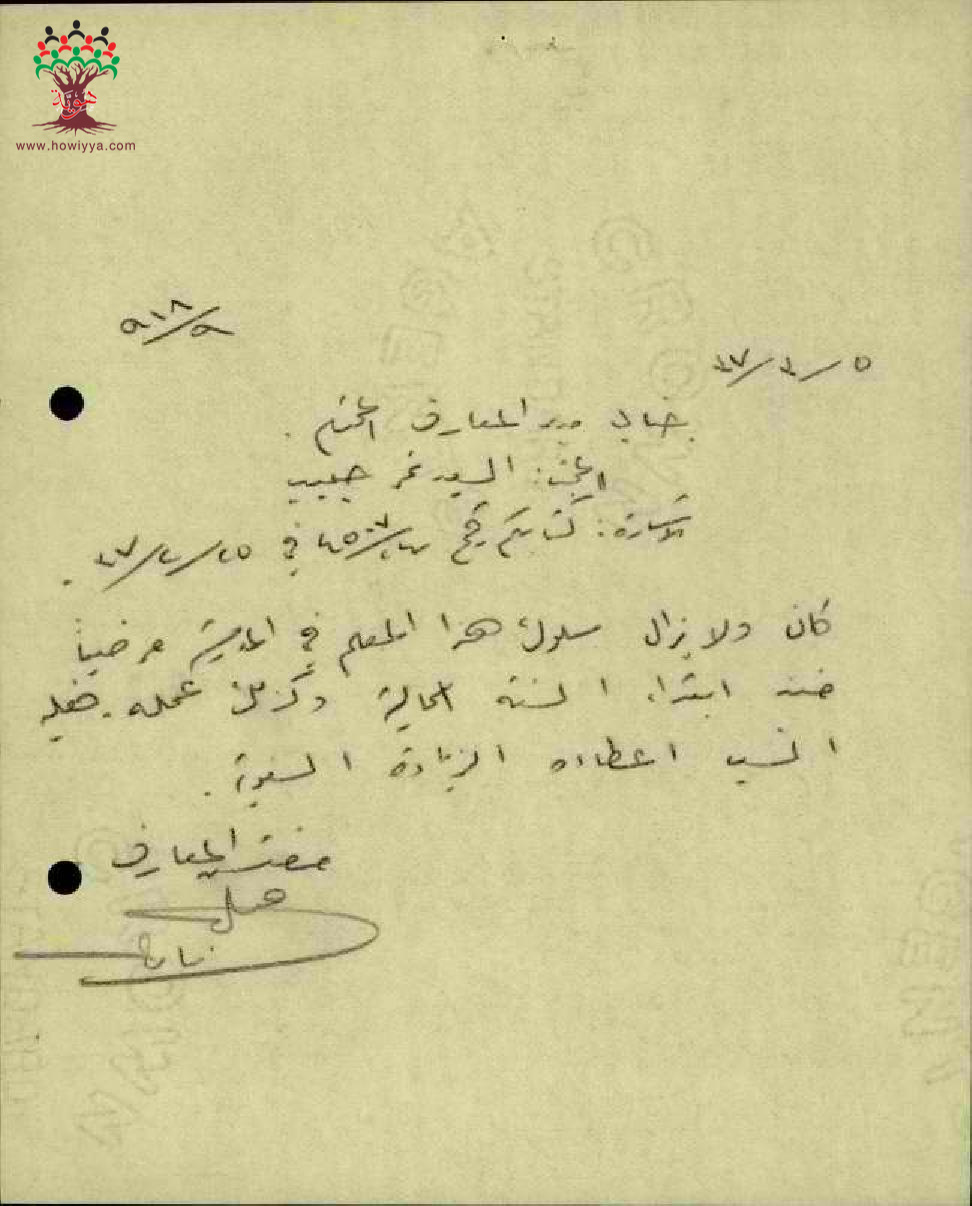 هوية
www.howiyya.com
٩١٨/٩
٥/٣/٣٧
جناب مدير المعارف المحترم .
البحث: السيد نمر حبيب
الاشارة: كتابكم رقم في ٢٥/٢/٣٧ .
كان ولا يزال سلوك هذا المعلم في المدرسة مرضياً
منذ ابتداء السنة الحالية وكذلك عمله. فعليه
انسب اعطاءه الزيادة السنوية .
مفتش المعارف